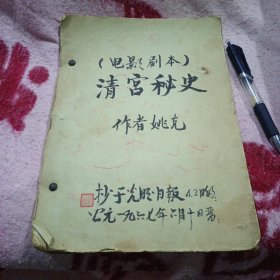 (电影剧本)
清宫秘史
作者姚克
抄于光明日报
公元一九六七年六月十日